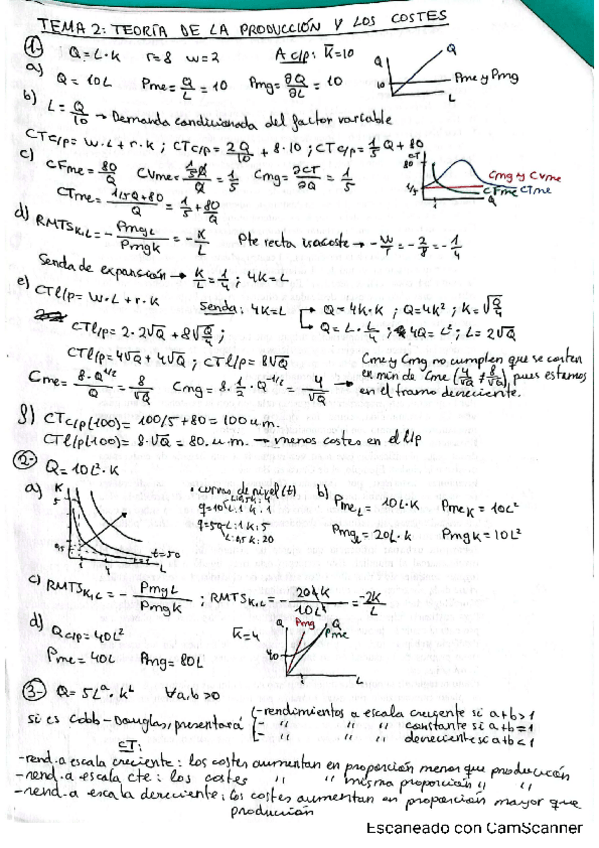 TEMA 2: TEORÍA DE LA PRODUCCIÓN Y LOS COSTES
1- Q=L·K r=8 w=2 A c/p: K̅=10
a) Q = 10L Pme = Q/L = 10 Pmg = ∂Q/∂L = 10
Q
10
L
Q
Pme y Pmg
b) L = Q/10 → Demanda condicionada del factor variable
CTc/p = w·L + r·K ; CTc/p = 2Q/10 + 8·10 ; CTc/p = 1/5 Q + 80
c) CFme = 80/Q CVme = 1/5Q/Q = 1/5 Cmg = ∂CT/∂Q = 1/5
CTme = 1/5Q+80/Q = 1/5 + 80/Q
CT
80
1/5
Cmg y CVme
CFme CTme
Q
d) RMTS K,L = - PmgL/PmgK = - K/L Pte recta isocoste → - w/r = - 2/8 = - 1/4
Senda de expansión → K/L = 1/4 ; 4K = L
e) CTl/p = w·L + r·K Senda: 4K=L → Q = 4K·K ; Q=4K² ; K=√Q/4
→ Q = L·L/4 ; 4Q = L² ; L = 2√Q
CTl/p = 2·2√Q + 8√Q/4 ;
CTl/p = 4√Q + 4√Q ; CTl/p = 8√Q
Cme = 8·Q^1/2/Q = 8/√Q Cmg = 8·1/2·Q^-1/2 = 4/√Q → Cme y Cmg no cumplen que se corten
en mín de Cme (4/√Q ≠ 8/√Q), pues estamos
en el tramo decreciente.
f) CTc/p(100) = 100/5 + 80 = 100 u.m.
CTl/p(100) = 8·√Q = 80. u.m. → menos costes en el l/p
2- Q = 10L²·K
a) K
t=50
L
• curvas de nivel (t)
q=10 L:1 K:1
q=50 L:1 K:5
b) PmeL = 10L·K PmeK = 10L²
PmgL = 20L·K PmgK = 10L²
c) RMTS K,L = - PmgL/PmgK ; RMTS K,L = - 20LK/10L² = -2K/L
d) Qc/p = 40L² K̅=4
Pme = 40L Pmg = 80L
Q Pmg Q
Pme
40
1
L
3- Q = 5L^a·K^b ∀a,b>0
si es Cobb-Douglas, presentará - rendimientos a escala creciente si a+b>1
- " " " constante si a+b=1
- " " " decreciente si a+b<1
CT:
-rend. a escala creciente: los costes aumentan en proporción menor que producción
-rend. a escala cte: los costes " " misma proporción " "
-rend. a escala decreciente: los costes aumentan en proporción mayor que
producción
Escaneado con CamScanner